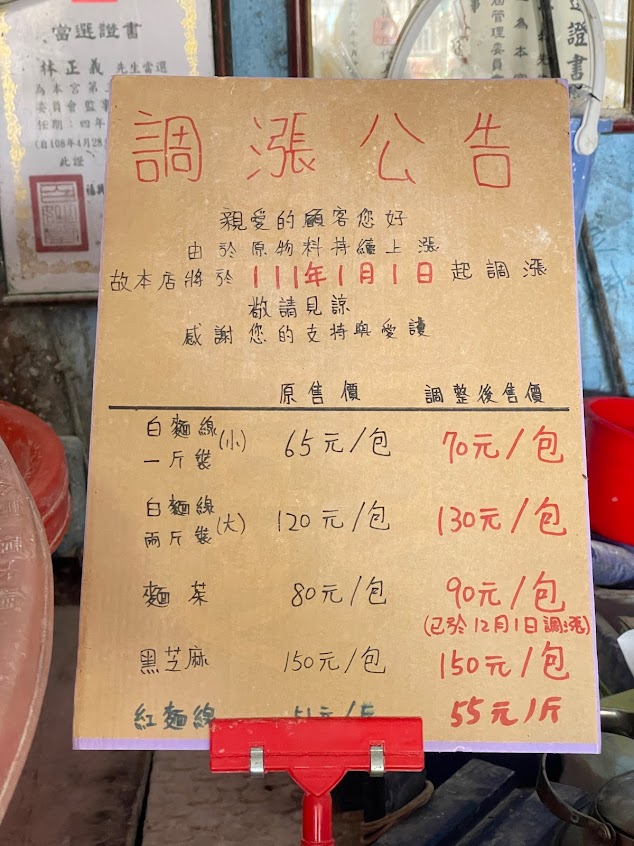 當選證書
林正義 先生當選
為本宮第
委員會監事
任期：四年
(自108年4月28
此證
為本宮
管理委員會
證書
調漲公告
親愛的顧客您好
由於原物料持續上漲
故本店將於111年1月1日起調漲
敬請見諒
感謝您的支持與愛護
原售價 調整後售價
白麵線(小) 一斤裝 65元/包 70元/包
白麵線(大) 兩斤裝 120元/包 130元/包
麵茶 80元/包 90元/包
(已於12月1日調漲)
黑芝麻 150元/包 150元/包
紅麵線 51元/斤 55元/斤